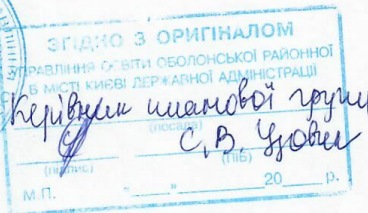 ЗГІДНО З ОРИГІНАЛОМ
УПРАВЛІННЯ ОСВІТИ ОБОЛОНСЬКОЇ РАЙОННОЇ
В МІСТІ КИЄВІ ДЕРЖАВНОЇ АДМІНІСТРАЦІЇ
Керівник планової групи
(посада)
С.В.
(підпис) (ПІБ)
М.П. "___" ___ 20___ р.